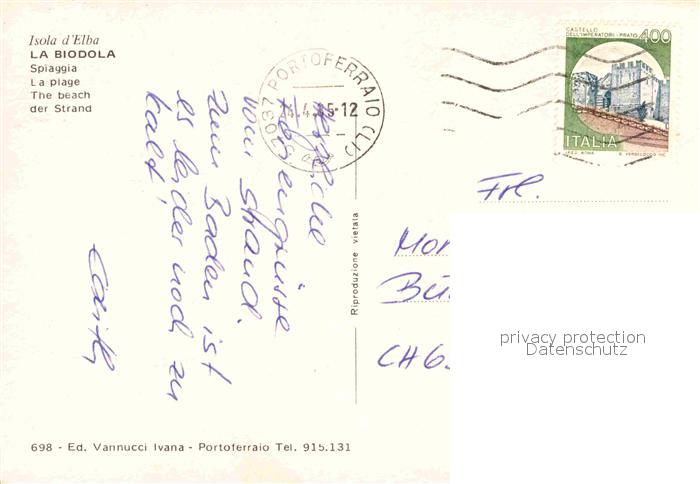 Isola d'Elba
LA BIODOLA
Spiaggia
La plage
The beach
der Strand
CASTELLO
DELL'IMPERATORE · PRATO
400
ITALIA
PORTOFERRAIO (LI)
57037
-12
Herzliche
Feriengrüsse
vom Strand.
Zum Baden ist
es leider noch zu
kalt!
Edith
Riproduzione vietata
Frl.
Mon
CH6
privacy protection
Datenschutz
698 - Ed. Vannucci Ivana - Portoferraio Tel. 915.131